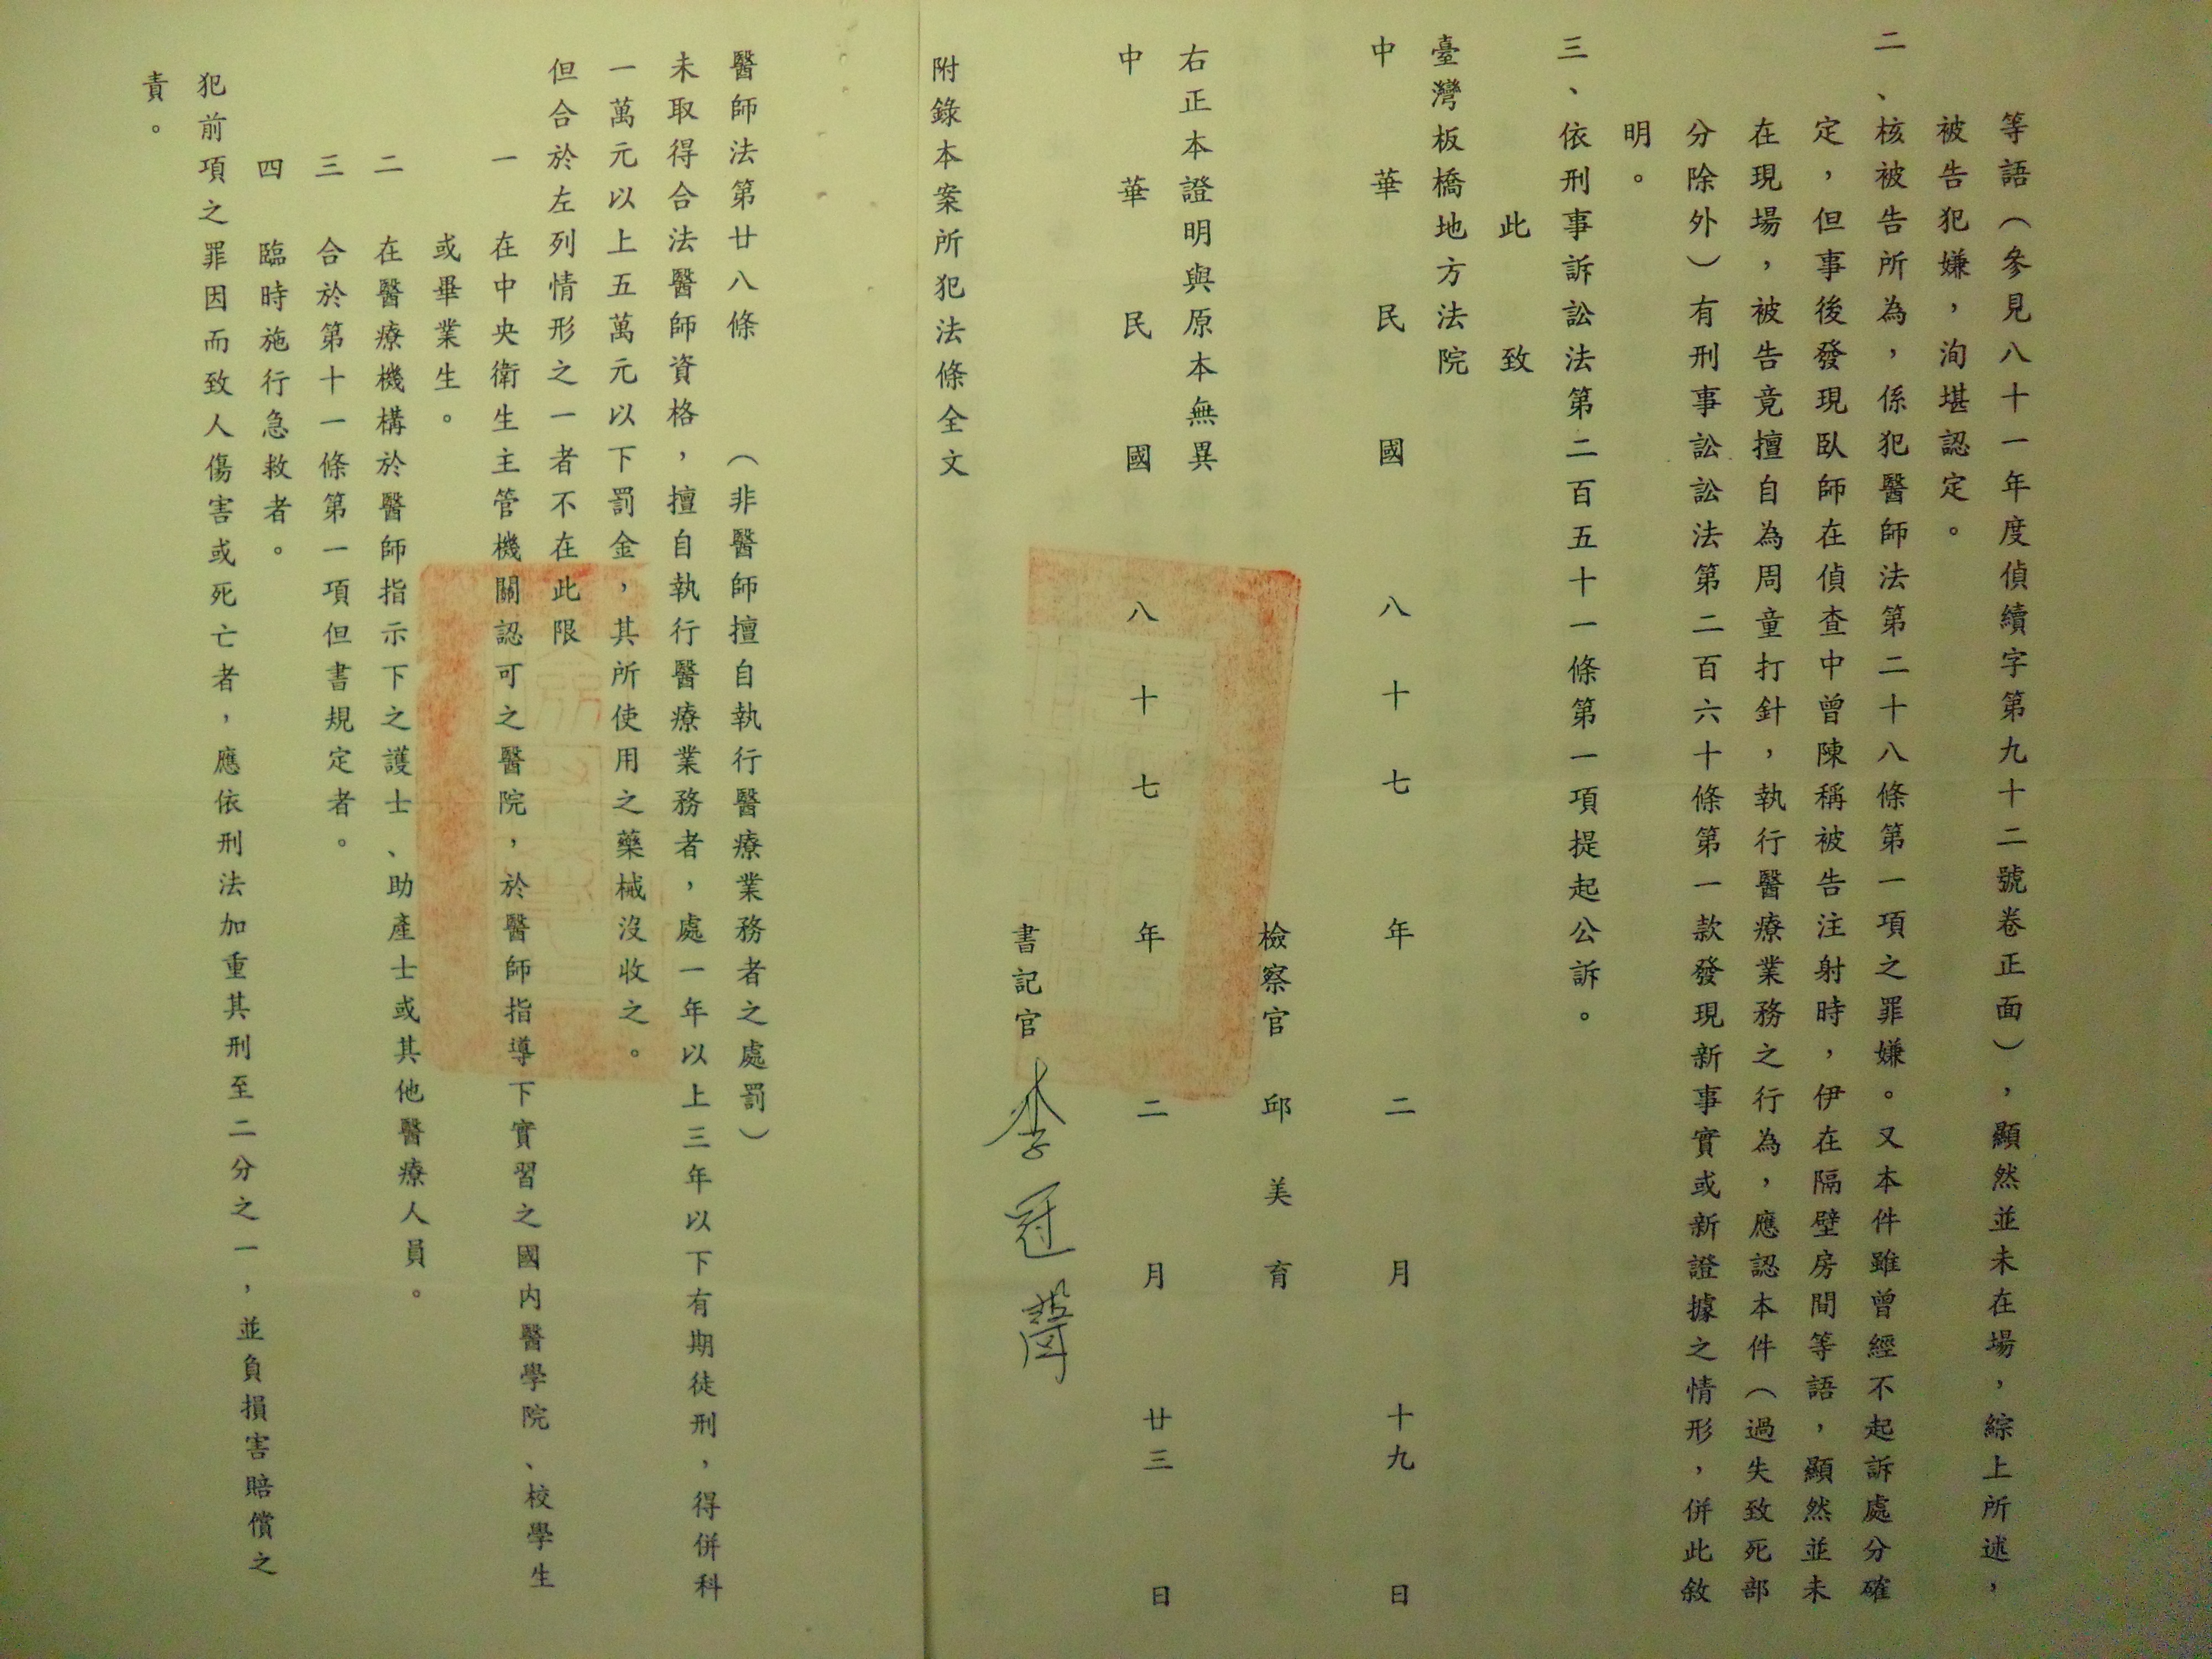 等語(參見八十一年度偵續字第九十二號卷正面),顯然並未在場,綜上所述,
被告犯嫌,洵堪認定。
二、核被告所為,係犯醫師法第二十八條第一項之罪嫌。又本件雖曾經不起訴處分確
定,但事後發現臥師在偵查中曾陳稱被告注射時,伊在隔壁房間等語,顯然並未
在現場,被告竟擅自為周童打針,執行醫療業務之行為,應認本件(過失致死部
分除外)有刑事訟訟法第二百六十條第一款發現新事實或新證據之情形,併此敘
明。
三、依刑事訴訟法第二百五十一條第一項提起公訴。
此致
臺灣板橋地方法院
中華民國八十七年二月十九日
檢察官 邱美育
右正本證明與原本無異
中華民國八十七年二月廿三日
書記官 李冠
附錄本案所犯法條全文
醫師法第廿八條 (非醫師擅自執行醫療業務者之處罰)
未取得合法醫師資格,擅自執行醫療業務者,處一年以上三年以下有期徒刑,得併科
一萬元以上五萬元以下罰金,其所使用之藥械沒收之。
但合於左列情形之一者不在此限
一 在中央衛生主管機關認可之醫院,於醫師指導下實習之國內醫學院、校學生
或畢業生。
二 在醫療機構於醫師指示下之護士、助產士或其他醫療人員。
三 合於第十一條第一項但書規定者。
四 臨時施行急救者。
犯前項之罪因而致人傷害或死亡者,應依刑法加重其刑至二分之一,並負損害賠償之
責。